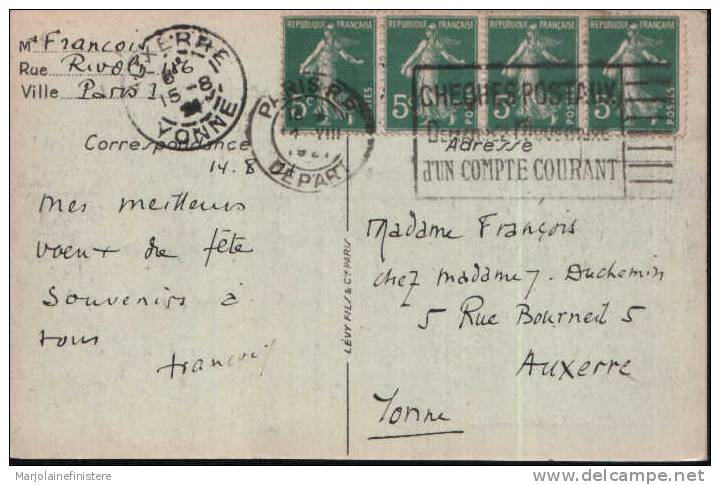 Mr François
Rue Rivoli
Ville Paris 1
AUXERRE
15 -8
YONNE
RÉPUBLIQUE FRANÇAISE
5c
POSTES
RÉPUBLIQUE FRANÇAISE
5c
POSTES
RÉPUBLIQUE FRANÇAISE
5c
POSTES
RÉPUBLIQUE FRANÇAISE
5c
POSTES
PARIS R.P.
VIII
1921
DÉPART
CHEQUES POSTAUX
DEMANDEZ L'OUVERTURE
d'UN COMPTE COURANT
Correspondance
Adresse
14.8
Mes meilleurs
voeux de fête
Souvenirs à
tous
François
LÉVY FILS & Cie PARIS
Madame François
chez Madame Duchemin
5 Rue Bourneil 5
Auxerre
Yonne
Marjolainefinistere
www.delcampe.net